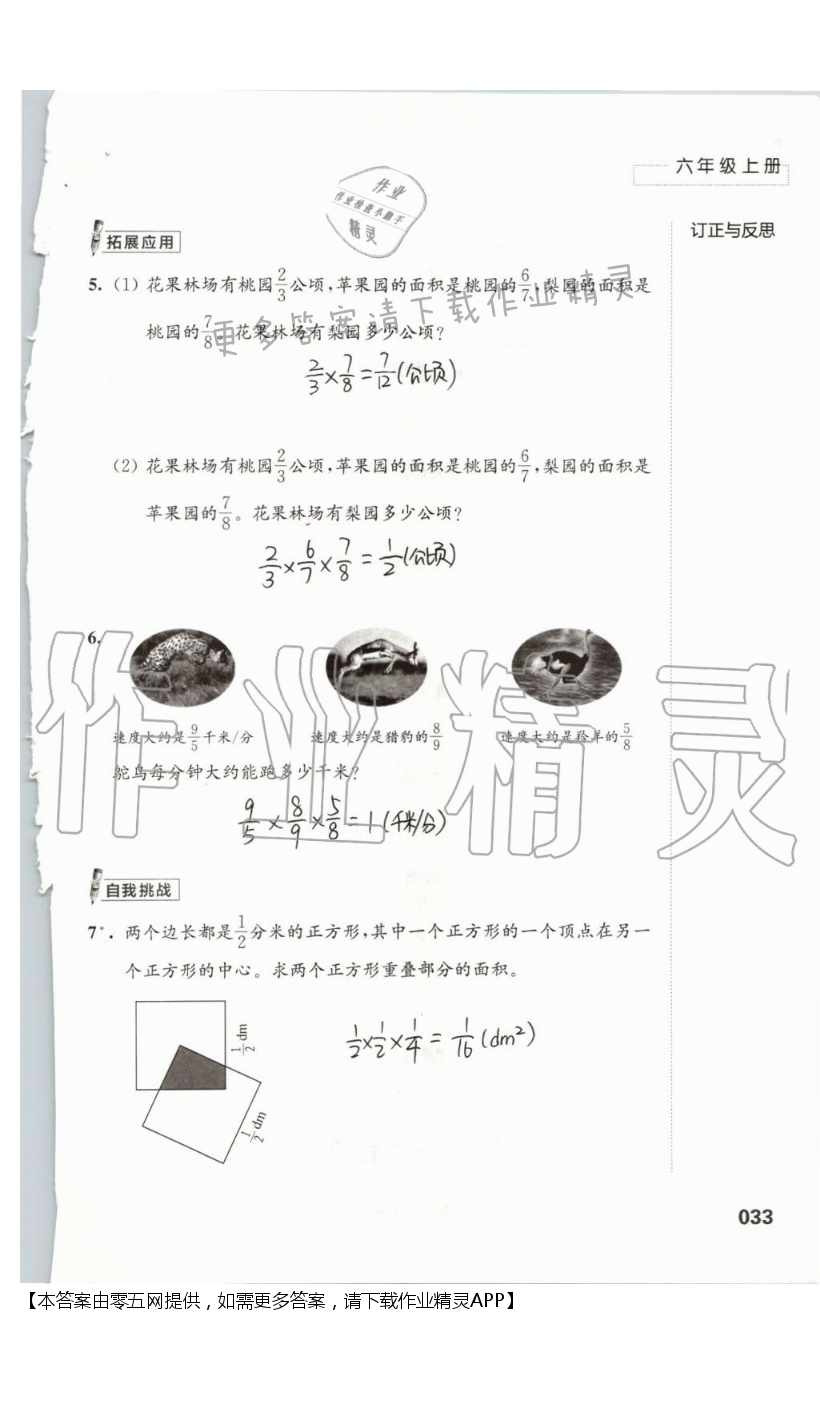 六年级上册
作业
作业检查小助手
精灵
拓展应用
订正与反思
5. (1) 花果林场有桃园2/3公顷,苹果园的面积是桃园的6/7,梨园的面积是
桃园的7/8。花果林场有梨园多少公顷?
更多答案请下载作业精灵
2/3×7/8=7/12(公顷)
(2) 花果林场有桃园2/3公顷,苹果园的面积是桃园的6/7,梨园的面积是
苹果园的7/8。花果林场有梨园多少公顷?
2/3×6/7×7/8=1/2(公顷)
6.
作业精灵
速度大约是9/5千米/分 速度大约是猎豹的8/9 速度大约是羚羊的5/8
鸵鸟每分钟大约能跑多少千米?
9/5×8/9×5/8=1(千米/分)
自我挑战
7*. 两个边长都是1/2分米的正方形,其中一个正方形的一个顶点在另一
个正方形的中心。求两个正方形重叠部分的面积。
1/2 dm
1/2×1/2×1/4=1/16(dm²)
1/2 dm
033
【本答案由零五网提供，如需更多答案，请下载作业精灵APP】